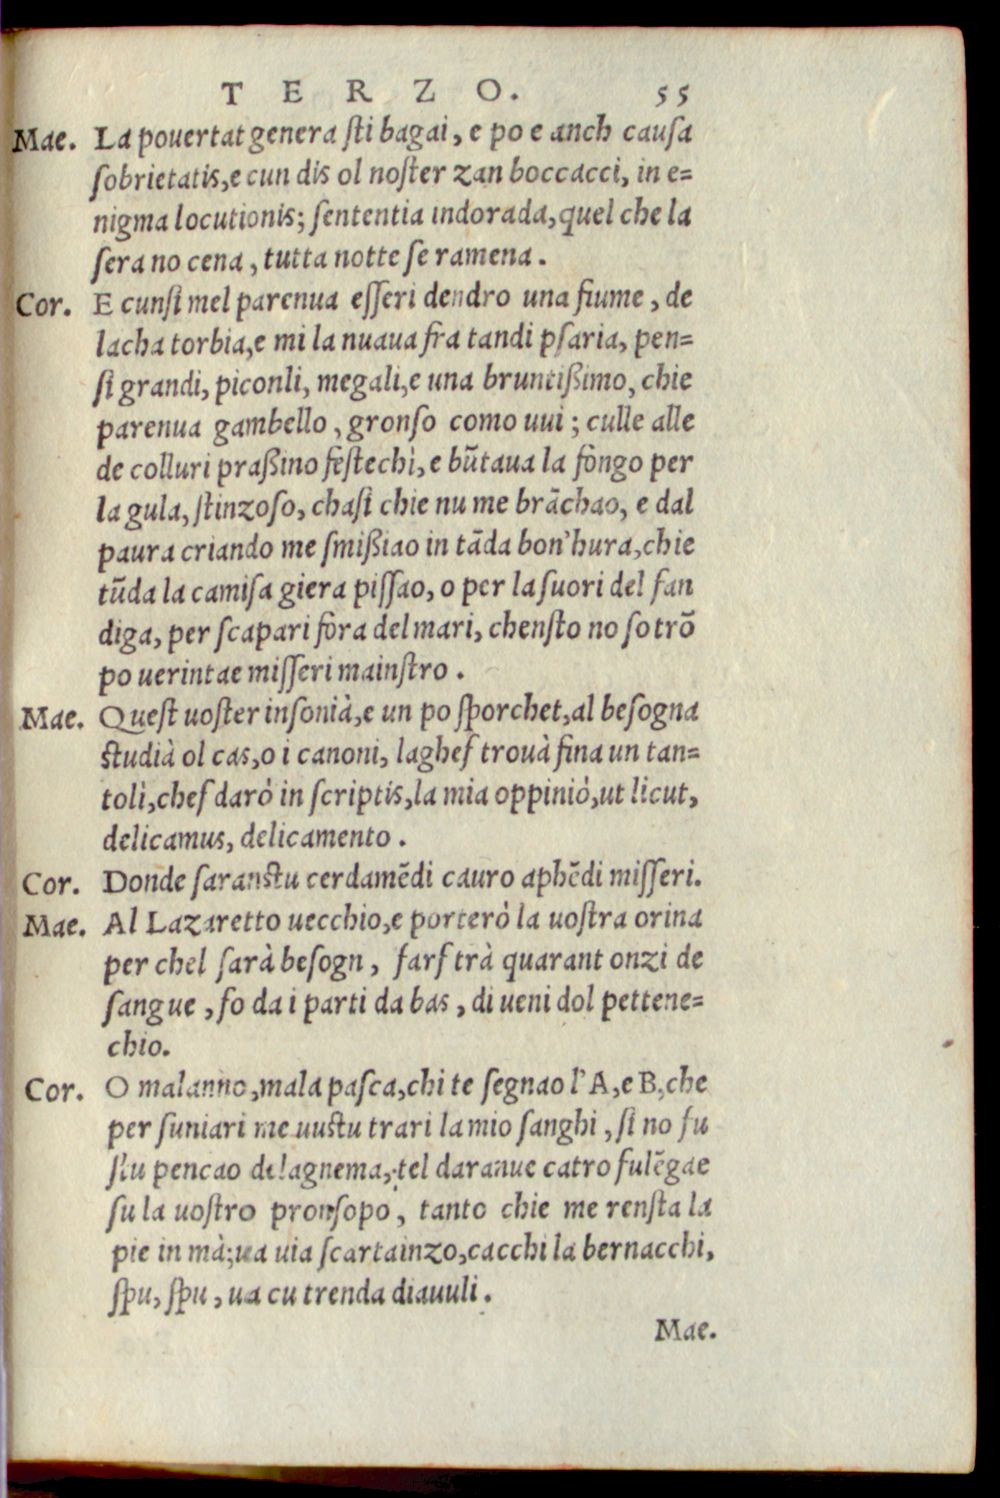 TERZO. 55
Mae. La pouertat genera ſti bagai, e po e anch cauſa
ſobrietatis, e cun dis ol noſter zan boccacci, in e=
nigma locutionis; ſententia indorada, quel che la
ſera no cena, tutta notte ſe ramena.
Cor. E cunſi mel parenua eſſeri dendro una fiume, de
lacha torbia, e mi la nuaua fra tandi pſaria, pen=
ſi grandi, piconli, megali, e una bruntißimo, chie
parenua gambello, gronſo como uui; culle alle
de colluri praßino feſtechi, e bũtaua la fongo per
la gula, ſtinzoſo, chaſi chie nu me brãchao, e dal
paura criando me ſmißiao in tãda bon'hura, chie
tũda la camiſa giera piſſao, o per la ſuori del fan
diga, per ſcapari fora del mari, chenſto no ſo trõ
po uerintae miſſeri mainſtro.
Mae. Queſt uoſter inſonià, e un po ſporchet, al beſogna
ſtudià ol cas, o i canoni, laghef trouà fina un tan=
tolì, chef darò in ſcriptis, la mia oppiniò, ut licut,
delicamus, delicamento.
Cor. Donde ſaranſtu cerdamẽdi cauro aphẽdi miſſeri.
Mae. Al Lazaretto uecchio, e porterò la uoſtra orina
per chel ſarà beſogn, farſ trà quarant onzi de
ſangue, fo da i parti da bas, di ueni dol pettene=
chio.
Cor. O malanno, mala paſca, chi te ſegnao l'A, e B, che
per ſuniari me uuſtu trari la mio ſanghi, ſi no fu
ſſu pencao delagnema, tel daranue catro fulẽgae
ſu la uoſtro pronſopo, tanto chie me renſta la
pie in mà; ua uia ſcartainzo, cacchi la bernacchi,
ſpu, ſpu, ua cu trenda diauuli.
Mae.